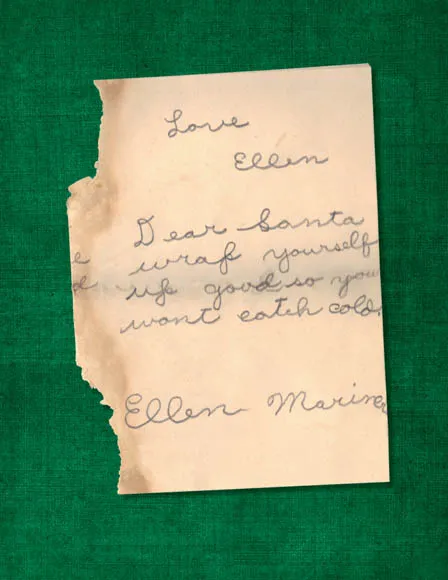 Love
Ellen
Dear Santa
wrap yourself
up good so you
wont catch cold.
Ellen Mariner